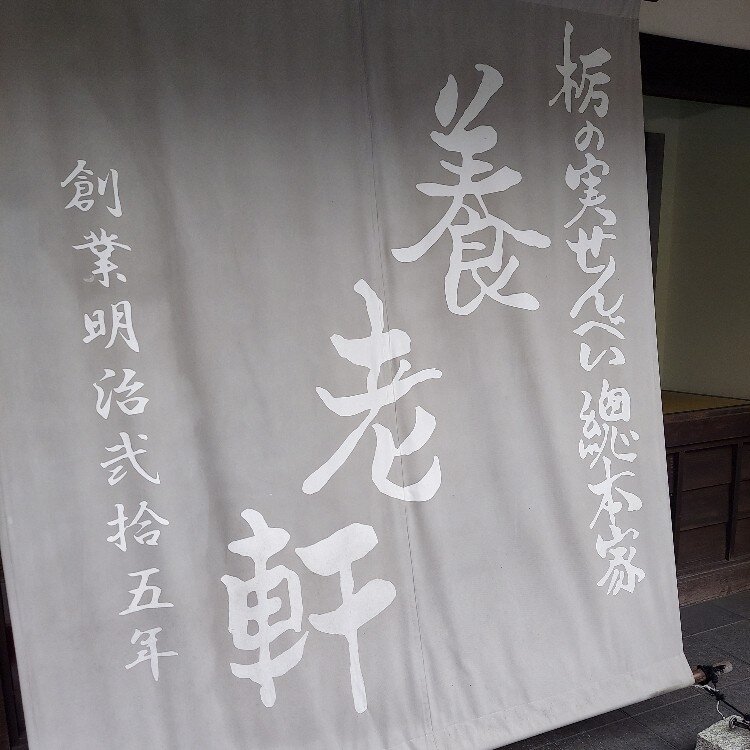 栃の実せんべい總本家
養老軒
創業明治弐拾五年